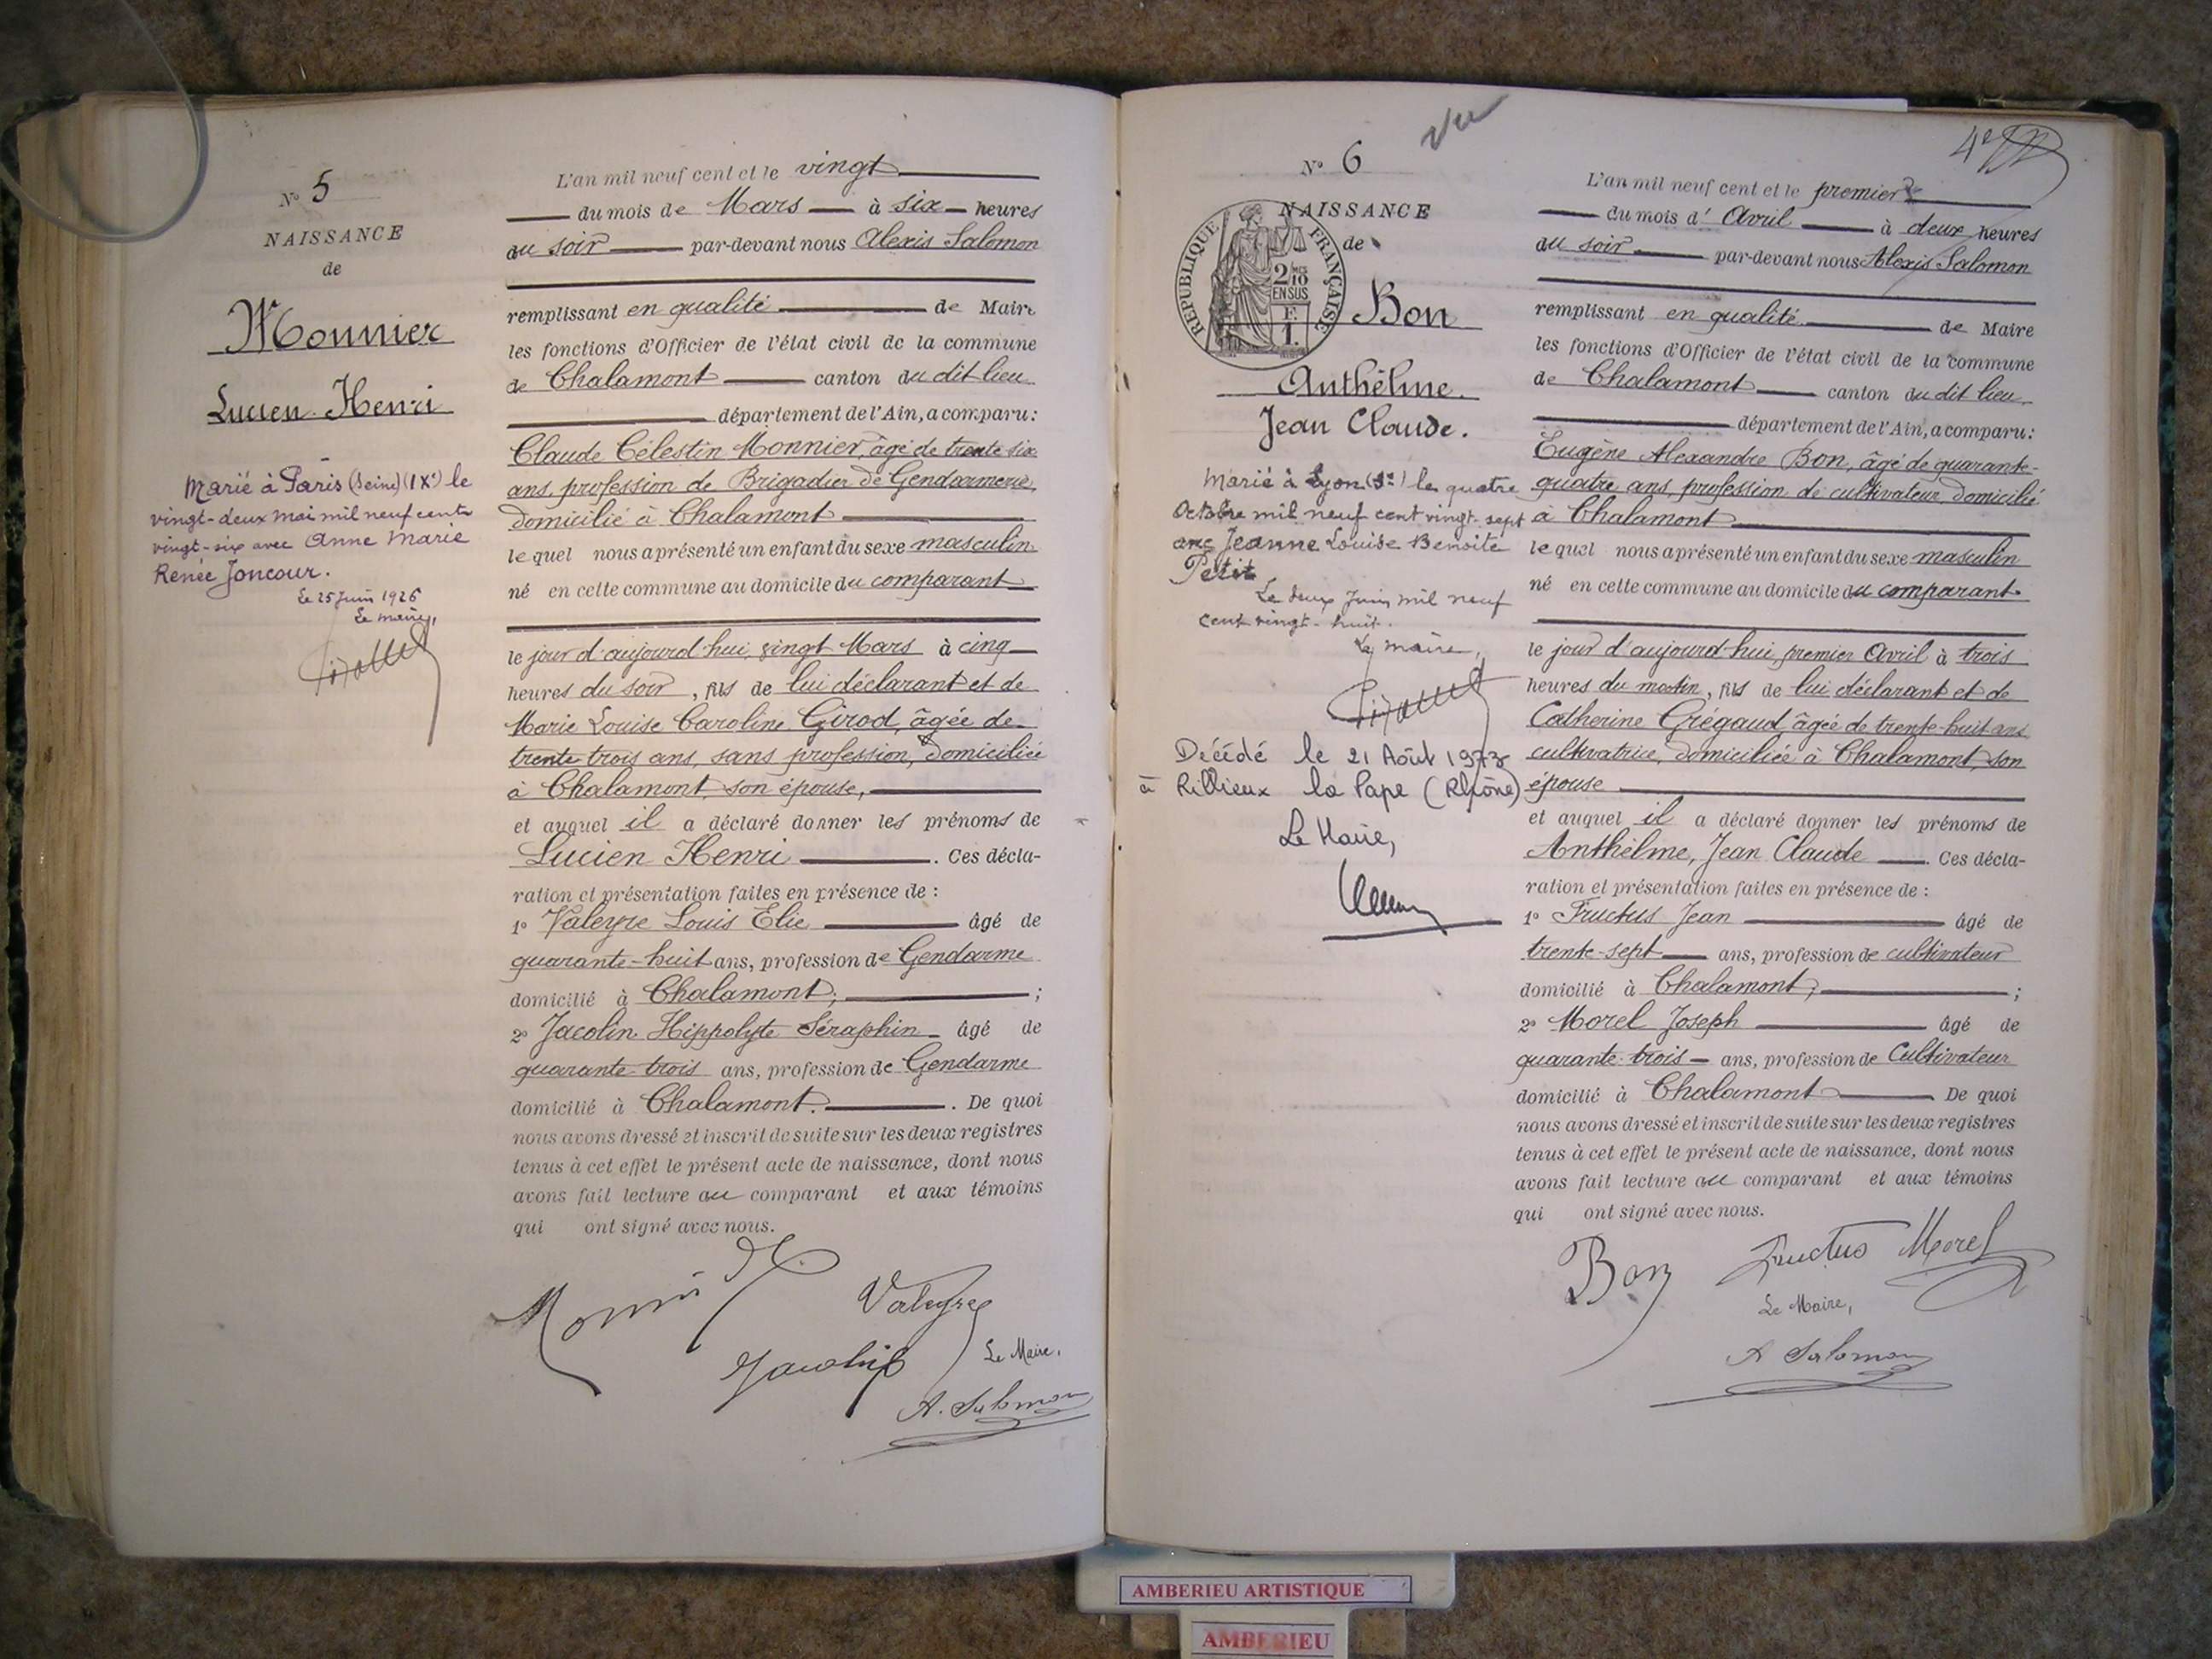 N° 5
NAISSANCE
de
Monnier
Lucien Henri
Marié à Paris (Seine) (IXe) le
vingt-deux mai mil neuf cent
vingt-six avec Anne Marie
Renée Joncour.
Le 25 Juin 1926
Le maire,
L'an mil neuf cent et le vingt
du mois de Mars à six heures
du soir par-devant nous Alexis Salomon
remplissant en qualité de Maire
les fonctions d'Officier de l'état civil de la commune
de Chalamont canton du dit lieu
département de l'Ain, a comparu:
Claude Célestin Monnier, âgé de trente six
ans, profession de Brigadier de Gendarmerie,
domicilié à Chalamont
lequel nous a présenté un enfant du sexe masculin
né en cette commune au domicile du comparant
le jour d'aujourd'hui, vingt Mars à cinq
heures du soir, fils de lui déclarant et de
Marie Louise Caroline Girod, âgée de
trente trois ans, sans profession, domiciliée
à Chalamont, son épouse,
et auquel il a déclaré donner les prénoms de
Lucien Henri. Ces décla-
ration et présentation faites en présence de :
1° Valeyre Louis Elie âgé de
quarante-huit ans, profession de Gendarme
domicilié à Chalamont, ;
2° Jacolin Hippolyte Séraphin âgé de
quarante trois ans, profession de Gendarme
domicilié à Chalamont. . De quoi
nous avons dressé et inscrit de suite sur les deux registres
tenus à cet effet le présent acte de naissance, dont nous
avons fait lecture au comparant et aux témoins
qui ont signé avec nous.
Valeyre
Jacolin
Le Maire,
A. Salomon
Vu
4e
N° 6
NAISSANCE
de
REPUBLIQUE FRANÇAISE
2/10 MES
EN SUS
F.
1.
Bon
Anthélme
Jean Claude.
Marié à Lyon (3e) le quatre
Octobre mil neuf cent vingt-sept
avec Jeanne Louise Benoite
Petit
Le deux Juin mil neuf
cent vingt-huit.
Le maire,
Décédé le 21 Août 1973
à Rillieux la Pape (Rhône)
Le Maire,
L'an mil neuf cent et le premier
du mois d'Avril à deux heures
du soir par-devant nous Alexis Salomon
remplissant en qualité de Maire
les fonctions d'Officier de l'état civil de la commune
de Chalamont canton du dit lieu
département de l'Ain, a comparu:
Eugène Alexandre Bon, âgé de quarante-
quatre ans, profession de cultivateur, domicilié
à Chalamont
lequel nous a présenté un enfant du sexe masculin
né en cette commune au domicile du comparant
le jour d'aujourd'hui, premier Avril à trois
heures du matin, fils de lui déclarant et de
Catherine Grégaud âgée de trente-huit ans
cultivatrice, domiciliée à Chalamont, son
épouse
et auquel il a déclaré donner les prénoms de
Anthélme, Jean Claude. Ces décla-
ration et présentation faites en présence de :
1° Fructus Jean âgé de
trente-sept ans, profession de cultivateur
domicilié à Chalamont, ;
2° Morel Joseph âgé de
quarante-trois ans, profession de Cultivateur
domicilié à Chalamont De quoi
nous avons dressé et inscrit de suite sur les deux registres
tenus à cet effet le présent acte de naissance, dont nous
avons fait lecture au comparant et aux témoins
qui ont signé avec nous.
Bon Fructus Morel
Le Maire,
A Salomon
AMBERIEU ARTISTIQUE
AMBERIEU